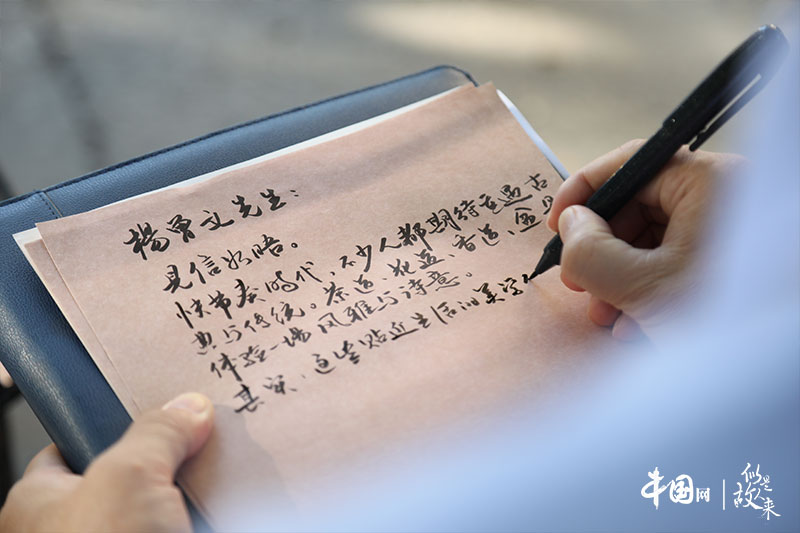 楊曾文先生：
見信如晤。
快节奏时代，不少人都期待過古
典与传统。茶道、花道、香道，
体验一场风雅与诗意。
其实，这些贴近生活的美学
中国网
似是故人来